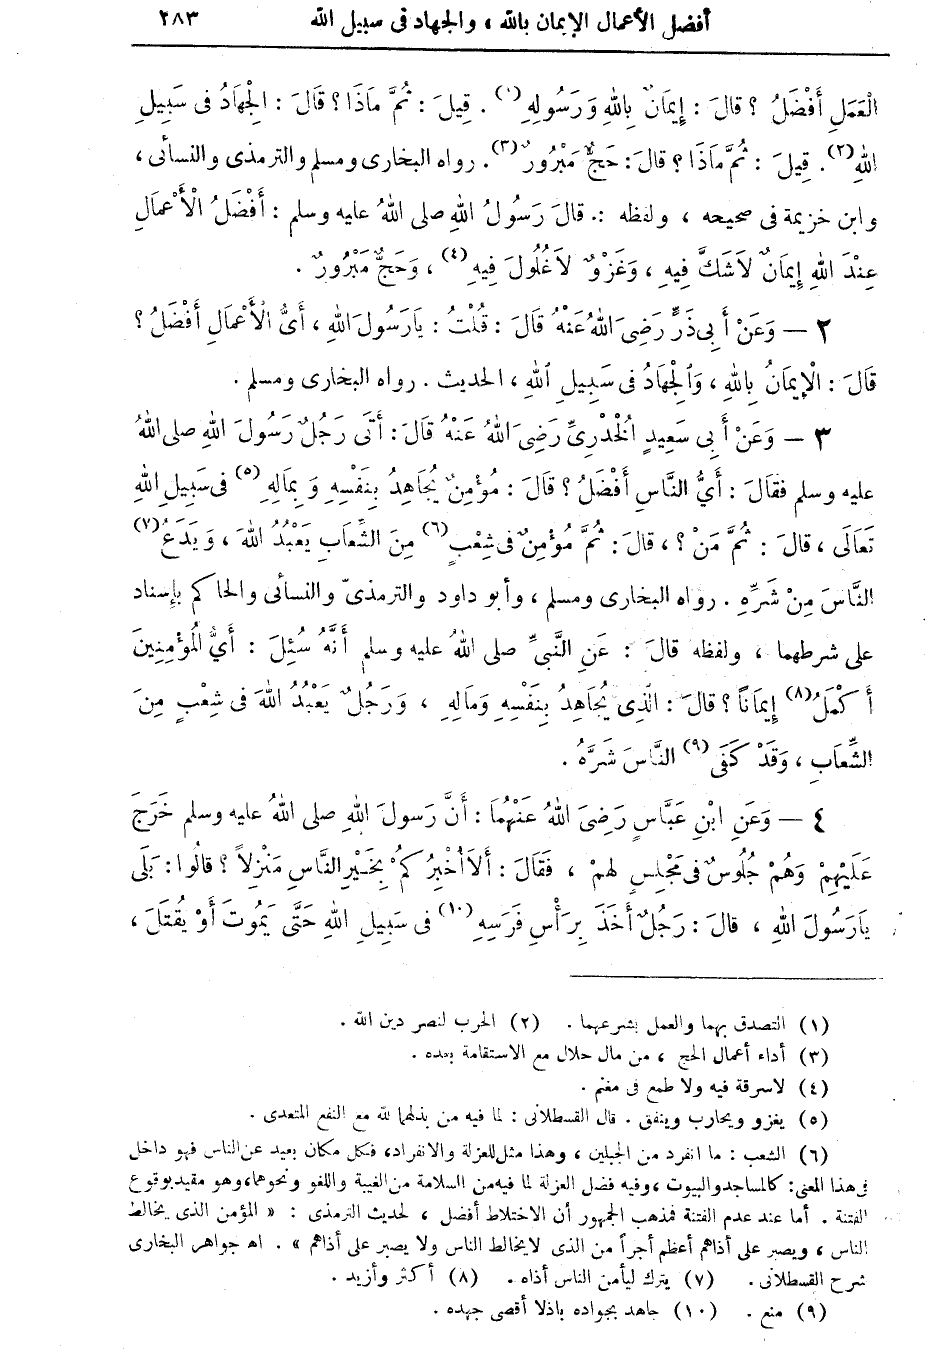 أفضل الأعمال الإيمان بالله ، والجهاد فى سبيل الله ٢٨٣
الْعَمَلِ أَفْضَلُ ؟ قالَ : إِيمَانٌ بِاللهِ وَرَسُولِهِ (١) . قِيلَ : ثُمَّ مَاذَا ؟ قالَ : الْجِهَادُ فى سَبِيلِ
اللهِ (٢) . قِيلَ : ثُمَّ مَاذَا ؟ قالَ : حَجٌّ مَبْرُورٌ (٣) . رواه البخارى ومسلم والترمذى والنسائى ،
وابن خزيمة فى صحيحه ، ولفظه : قالَ رَسُولُ اللهِ صلى اللهُ عليه وسلم : أَفْضَلُ الْأَعْمَالِ
عِنْدَ اللهِ إِيمَانٌ لَاشَكَّ فِيهِ ، وَغَزْوٌ لَاغُلُولَ فِيهِ (٤) ، وَحَجٌّ مَبْرُورٌ .
٢ — وَعَنْ أَبِى ذَرٍّ رَضِىَ اللهُ عَنْهُ قالَ : قُلْتُ : يَارَسُولَ اللهِ ، أَىُّ الْأَعْمَالِ أَفْضَلُ ؟
قَالَ : الْإِيمَانُ بِاللهِ ، وَالْجِهَادُ فى سَبِيلِ اللهِ ، الحديث . رواه البخارى ومسلم .
٣ — وَعَنْ أَبِى سَعِيدٍ الْخُدْرِىِّ رَضِىَ اللهُ عَنْهُ قالَ : أَتَى رَجُلٌ رَسُولَ اللهِ صلى اللهُ
عليه وسلم فقالَ : أَىُّ النَّاسِ أَفْضَلُ ؟ قالَ : مُؤْمِنٌ يُجَاهِدُ بِنَفْسِهِ وَبِمَالِهِ (٥) فى سَبِيلِ اللهِ
تَعَالَى ، قالَ : ثُمَّ مَنْ ؟ ، قالَ : ثُمَّ مُؤْمِنٌ فى شِعْبٍ (٦) مِنَ الشِّعَابِ يَعْبُدُ اللهَ ، وَيَدَعُ (٧)
النَّاسَ مِنْ شَرِّهِ . رواه البخارى ومسلم ، وأبو داود والترمذىّ والنسائى والحاكم بإسناد
على شرطهما ، ولفظه قالَ : عَنِ النَّبىِّ صلى اللهُ عليه وسلم أَنَّهُ سُئِلَ : أَىُّ الْمُؤْمِنِينَ
أَكْمَلُ (٨) إِيمَاناً ؟ قالَ : الَّذِى يُجَاهِدُ بِنَفْسِهِ وَمَالِهِ ، وَرَجُلٌ يَعْبُدُ اللهَ فى شِعْبٍ مِنَ
الشِّعَابِ ، وَقَدْ كَفَى (٩) النَّاسَ شَرَّهُ .
٤ — وَعَنِ ابْنِ عَبَّاسٍ رَضِىَ اللهُ عَنْهُمَا : أَنَّ رَسولَ اللهِ صلى اللهُ عليه وسلم خَرَجَ
عَلَيْهِمْ وَهُمْ جُلُوسٌ فى مَجْلِسٍ لهمْ ، فَقَالَ : أَلَا أُخْبِرُكُمْ بِخَيْرِ النَّاسِ مَنْزِلاً ؟ قالُوا : بَلَى
يَارَسُولَ اللهِ ، قالَ : رَجُلٌ أَخَذَ بِرَأْسِ فَرَسِهِ (١٠) فى سَبِيلِ اللهِ حَتَّى يَمُوتَ أَوْ يُقْتَلَ ،
(١) التصدق بهما والعمل بشرعهما . (٢) الحرب لنصر دين الله .
(٣) أداء أعمال الحج ، من مال حلال مع الاستقامة بعده .
(٤) لاسرقة فيه ولا طمع فى مغنم .
(٥) يغزو ويحارب وينفق . قال القسطلانى : لما فيه من بذلهما لله مع النفع المتعدى .
(٦) الشعب : ما انفرد من الجبلين ، وهذا مثل للعزلة والانفراد، فكل مكان بعيد عن الناس فهو داخل
فى هذا المعنى: كالمساجد والبيوت ، وفيه فضل العزلة لما فيه من السلامة من الغيبة واللغو ونحوهما، وهو مقيد بوقوع
الفتنة . أما عند عدم الفتنة فمذهب الجمهور أن الاختلاط أفضل ، لحديث الترمذى : « المؤمن الذى يخالط
الناس ، ويصبر على أذاهم أعظم أجراً من الذى لايخالط الناس ولا يصبر على أذاهم » . اه جواهر البخارى
شرح القسطلانى . (٧) يترك ليأمن الناس أذاه . (٨) أكثر وأزيد .
(٩) منع . (١٠) جاهد بجواده باذلا أقصى جهده .